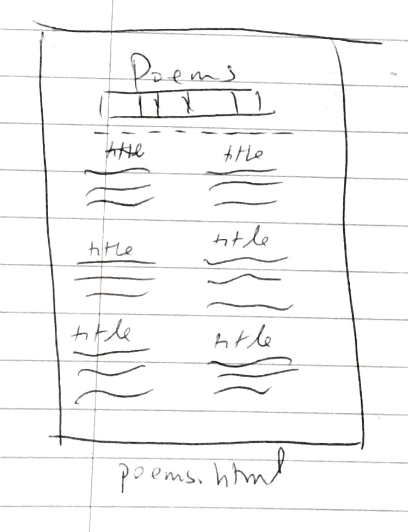 Poems
title title
title title
title title
poems.html